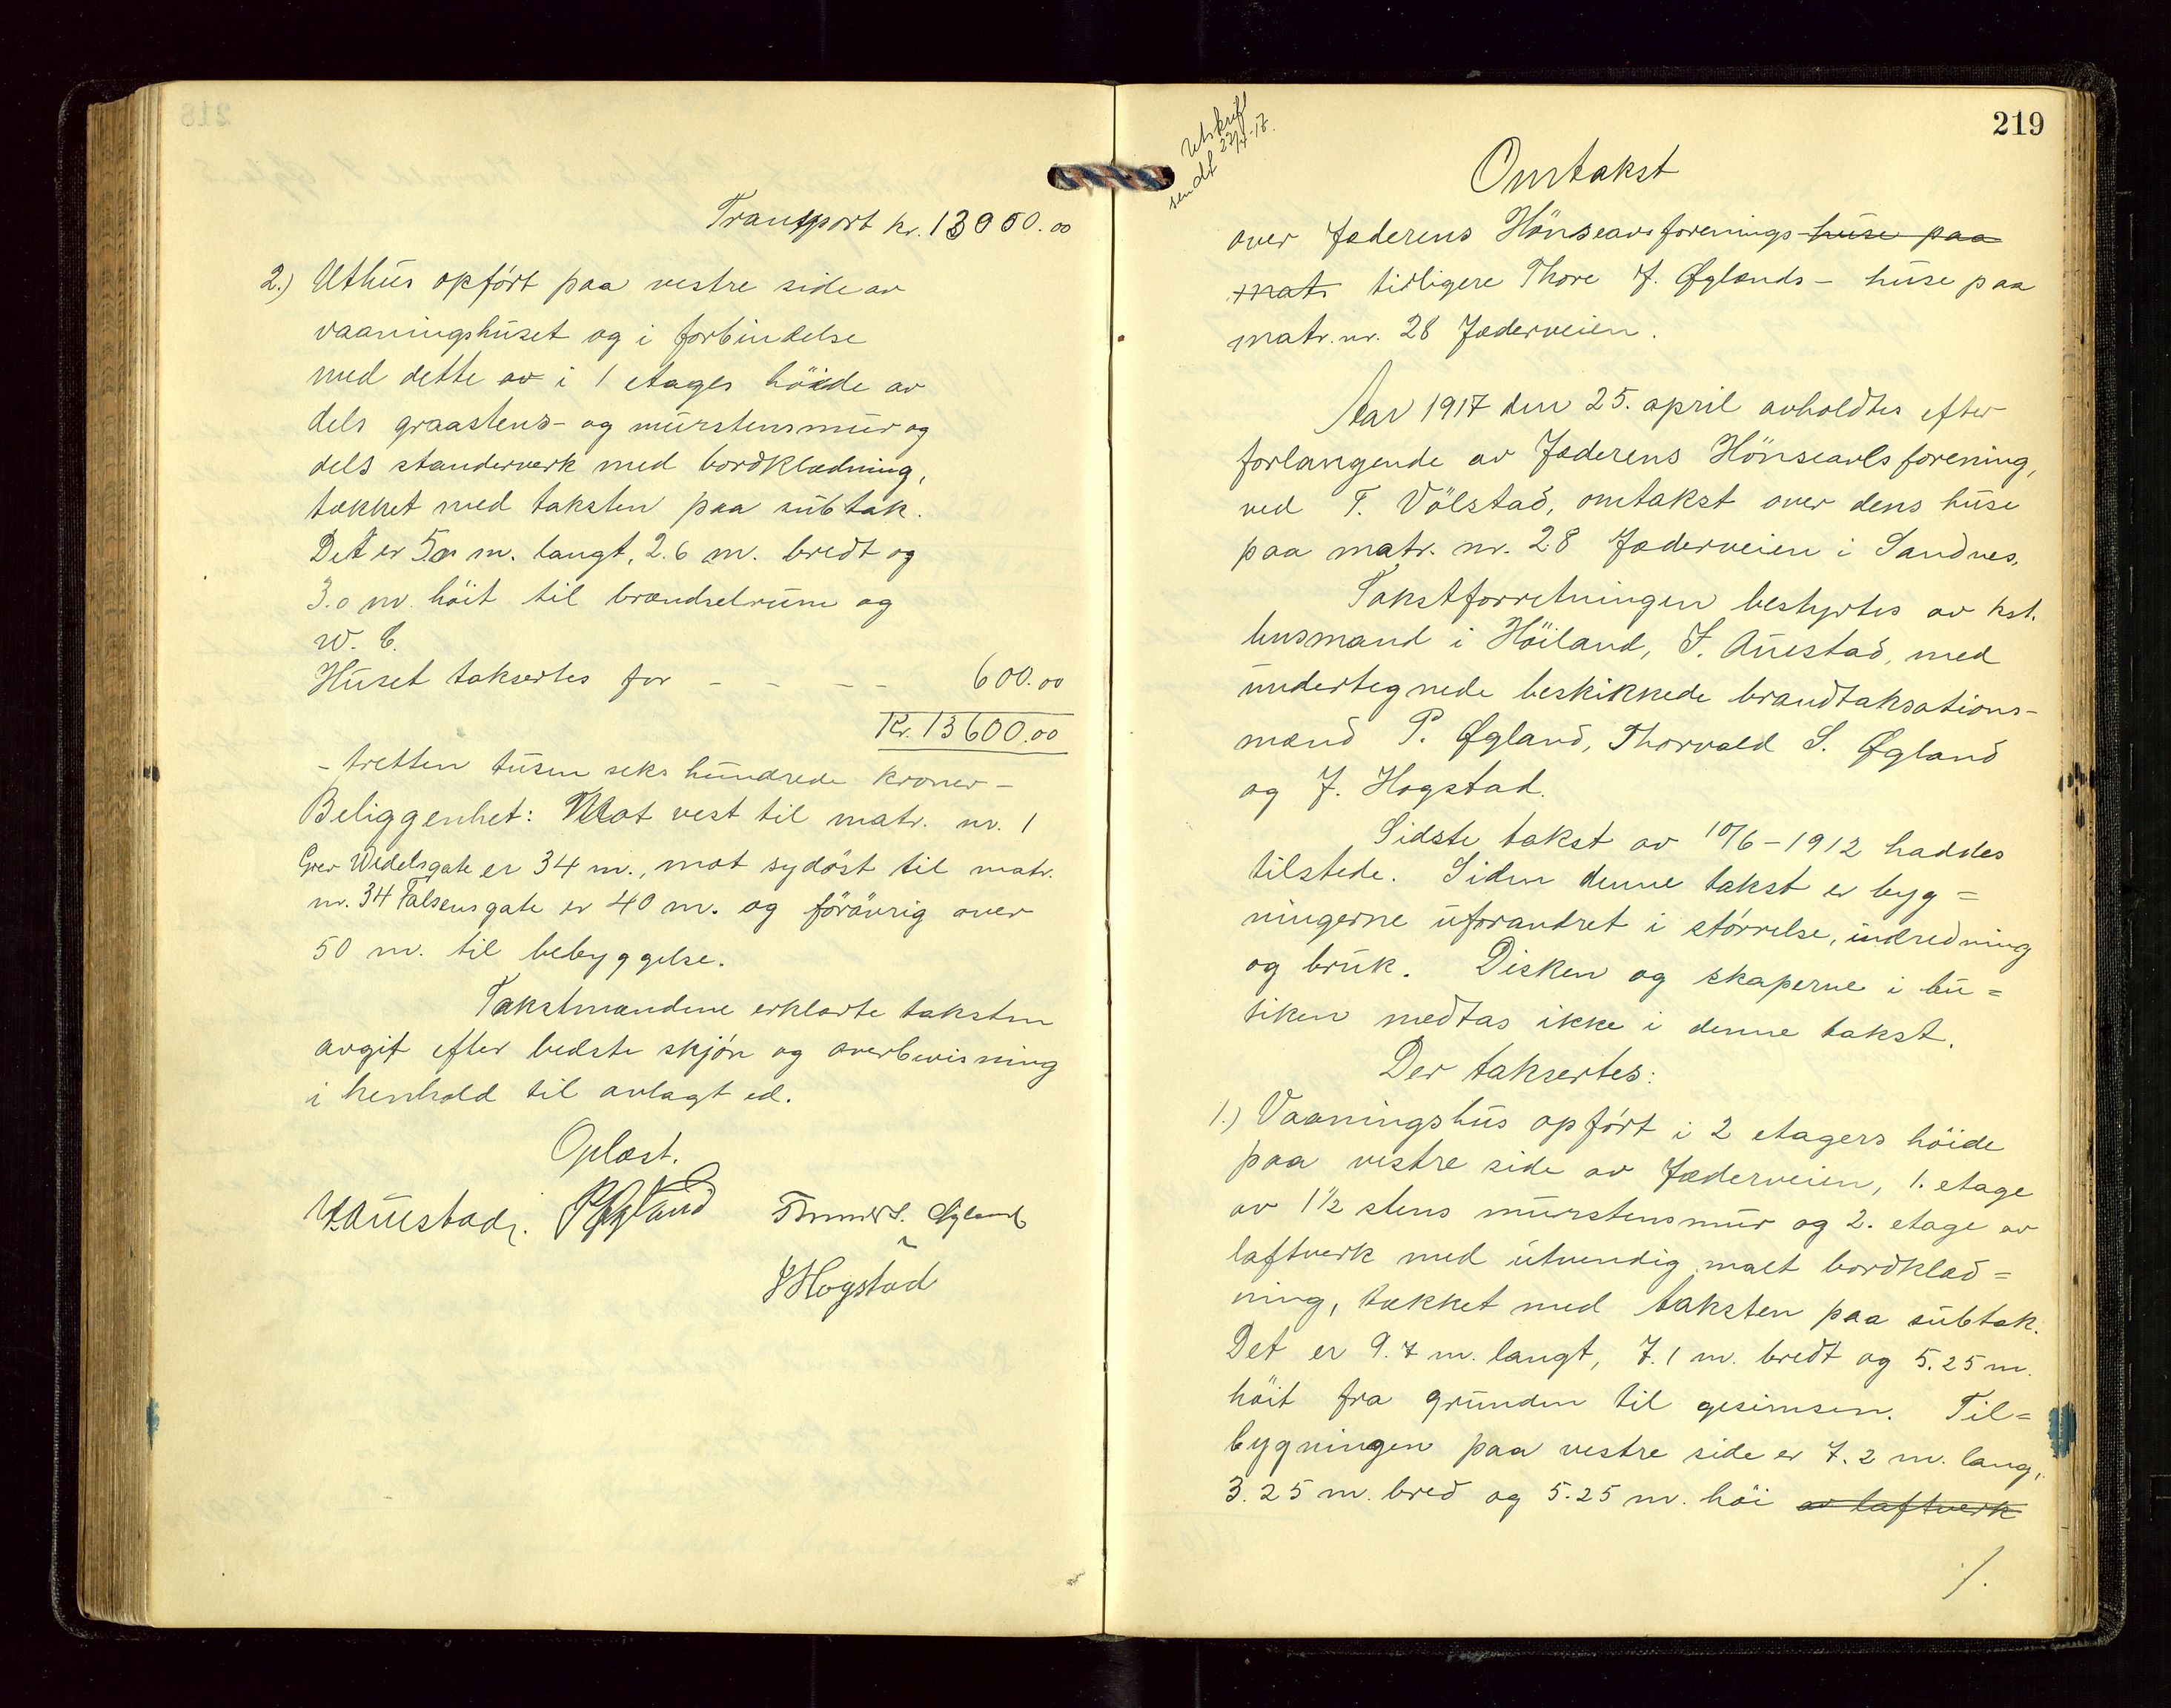 Transport kr. 13000.00
2.) Uthus opfört paa vestre side av
vaaningshuset og i forbindelse
med dette av i 1 etages höide av
dels graastens- og murstensmur og
dels standerverk med bordklædning,
tækket med taksten paa subtak.
Det er 5.0 m. langt, 2.6 m. bredt og
3.0 m. höit til brændselrum og
W. C.
Huset taksertes for - - - - 600.00
Kr. 13600.00
- tretten tusen seks hundrede kroner -
Beliggenhet: Mot vest til matr. nr. 1
Grev Wedelsgate er 34 m., mot sydöst til matr.
nr. 34 Falsensgate er 40 m. og förövrig over
50 m. til bebyggelse.
Takstmændene erklærte taksten
avgit efter bedste skjön og overbevisning
i henhold til avlagt ed.
Oplæst.
Auestad. P Øgland S. Øgland
J Hogstad
219
Utskrift
sendt 27/4-17.
Omtakst
over Jæderens Hönseavsforenings huse paa
matr. tidligere Thore J. Øglænds - huse paa
matr. nr. 28 Jæderveien.
Aar 1917 den 25. april avholdtes efter
forlangende av Jæderens Hönseavlsforening,
ved T. Völstad, omtakst over dens huse
paa matr. nr. 28 Jæderveien i Sandnes.
Takstforretningen bestyrtes av kst.
lensmand i Höiland, S. Auestad, med
undertegnede beskikkede brandtaksations-
mænd P. Øgland, Thorvald S. Øgland
og J. Hogstad.
Sidste takst av 10/6-1912 haddes
tilstede. Siden denne takst er byg=
ningerne uforandret i störrelse, indredning
og bruk. Disken og skaperne i bu=
tiken medtas ikke i denne takst.
Der taksertes:
1.) Vaaningshus opfört i 2 etagers höide
paa vestre side av Jæderveien, 1. etage
av 1 1/2 stens murstensmur og 2. etage av
laftverk med utvendig malt bordklæd=
ning, tækket med taksten paa subtak.
Det er 9.7 m. langt, 7.1 m. bredt og 5.25 m.
höit fra grunden til gesimsen. Til=
bygningen paa vestre side er 7.2 m. lang,
3.25 m. bred og 5.25 m. höi av laftverk
./.